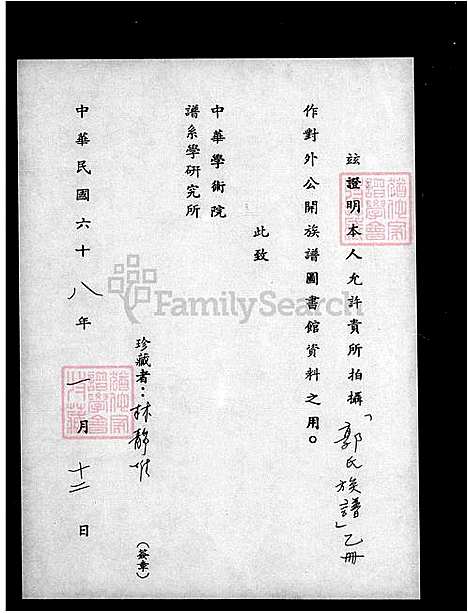 玆證明本人允許貴所拍攝「郭氏族譜」乙冊
作對外公開族譜圖書館資料之用。
此致
中華學術院
譜系學研究所
珍藏者：林靜
(簽章)
中華民國六十八年一月十二日
FamilySearch